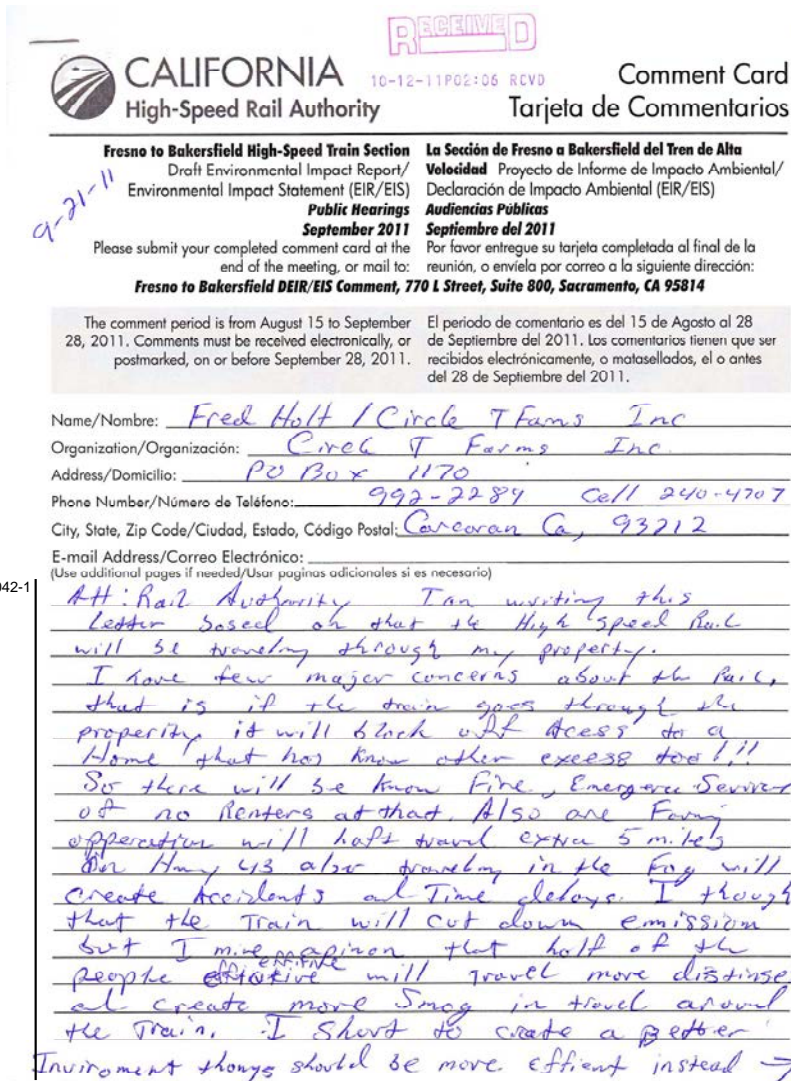 RECEIVED
CALIFORNIA
High-Speed Rail Authority
10-12-11P02:06 RCVD
Comment Card
Tarjeta de Commentarios
9-21-11
Fresno to Bakersfield High-Speed Train Section
Draft Environmental Impact Report/
Environmental Impact Statement (EIR/EIS)
Public Hearings
September 2011
Please submit your completed comment card at the
end of the meeting, or mail to:
La Sección de Fresno a Bakersfield del Tren de Alta
Velocidad Proyecto de Informe de Impacto Ambiental/
Declaración de Impacto Ambiental (EIR/EIS)
Audiencias Públicas
Septiembre del 2011
Por favor entregue su tarjeta completada al final de la
reunión, o envíela por correo a la siguiente dirección:
Fresno to Bakersfield DEIR/EIS Comment, 770 L Street, Suite 800, Sacramento, CA 95814
The comment period is from August 15 to September
28, 2011. Comments must be received electronically, or
postmarked, on or before September 28, 2011.
El periodo de comentario es del 15 de Agosto al 28
de Septiembre del 2011. Los comentarios tienen que ser
recibidos electrónicamente, o matasellados, el o antes
del 28 de Septiembre del 2011.
Name/Nombre: Fred Holt / Circle T Fams Inc
Organization/Organización: Circle T Farms Inc.
Address/Domicilio: PO Box 1170
Phone Number/Número de Teléfono: 992-2284 Cell 240-4707
City, State, Zip Code/Ciudad, Estado, Código Postal: Corcoran Ca, 93212
E-mail Address/Correo Electrónico:
(Use additional pages if needed/Usar paginas adicionales si es necesario)
042-1
Att: Rail Authority I an writing this
Letter based on that the High speed Rail
will be traveling through my property.
I have few major concerns about the Rail,
that is if the train goes through the
properity it will block off Acess to a
Home that has know other excess too!!!
So there will be know Fire, Emergence
of no Renters at that. Also are Farm
opperation will haft travel extra 5 miles
on Hwy 43 also traveling in the Fog will
create Accidents and Time delays. I though
that the Train will cut down emission
but I mine opinon that half of the
people effitive will travel more distinse
and create more Smog in travel around
the Train. I Short to create a Better
Inviroment things should be more Effient instead →